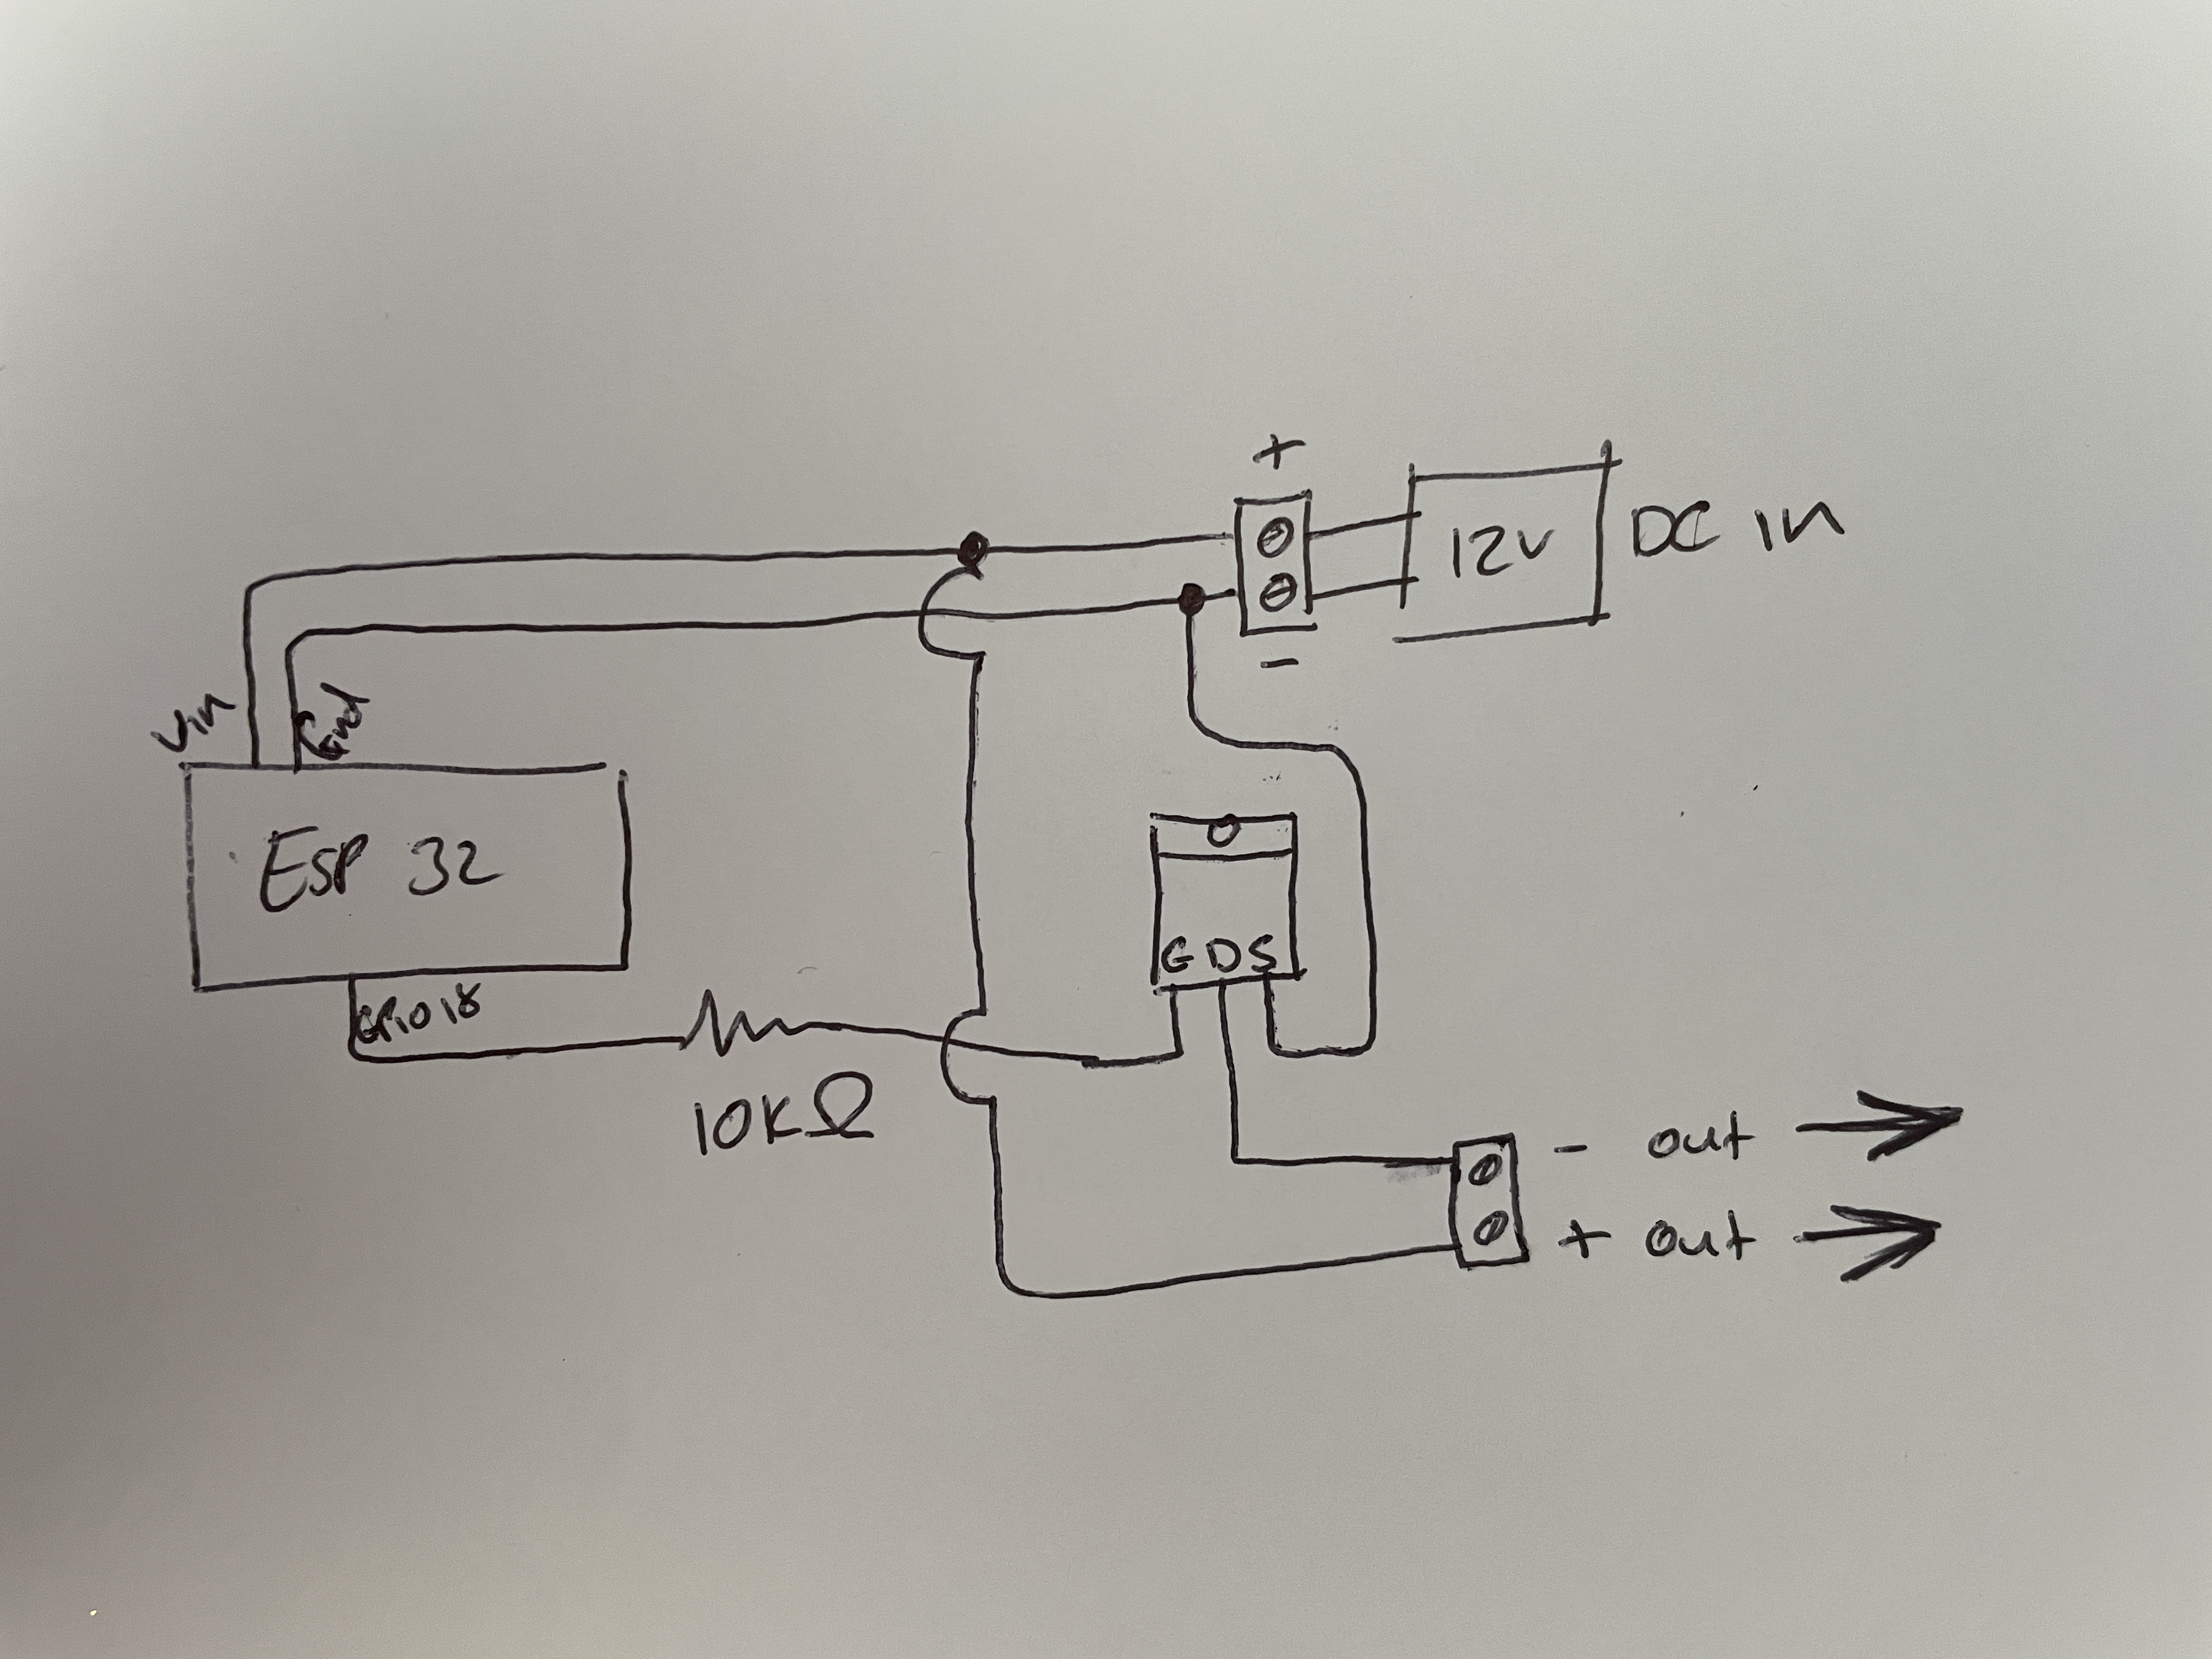 +
12V DC IN
-
Vin Gnd
ESP 32
GPIO 18
10KΩ
G D S
- out
+ out